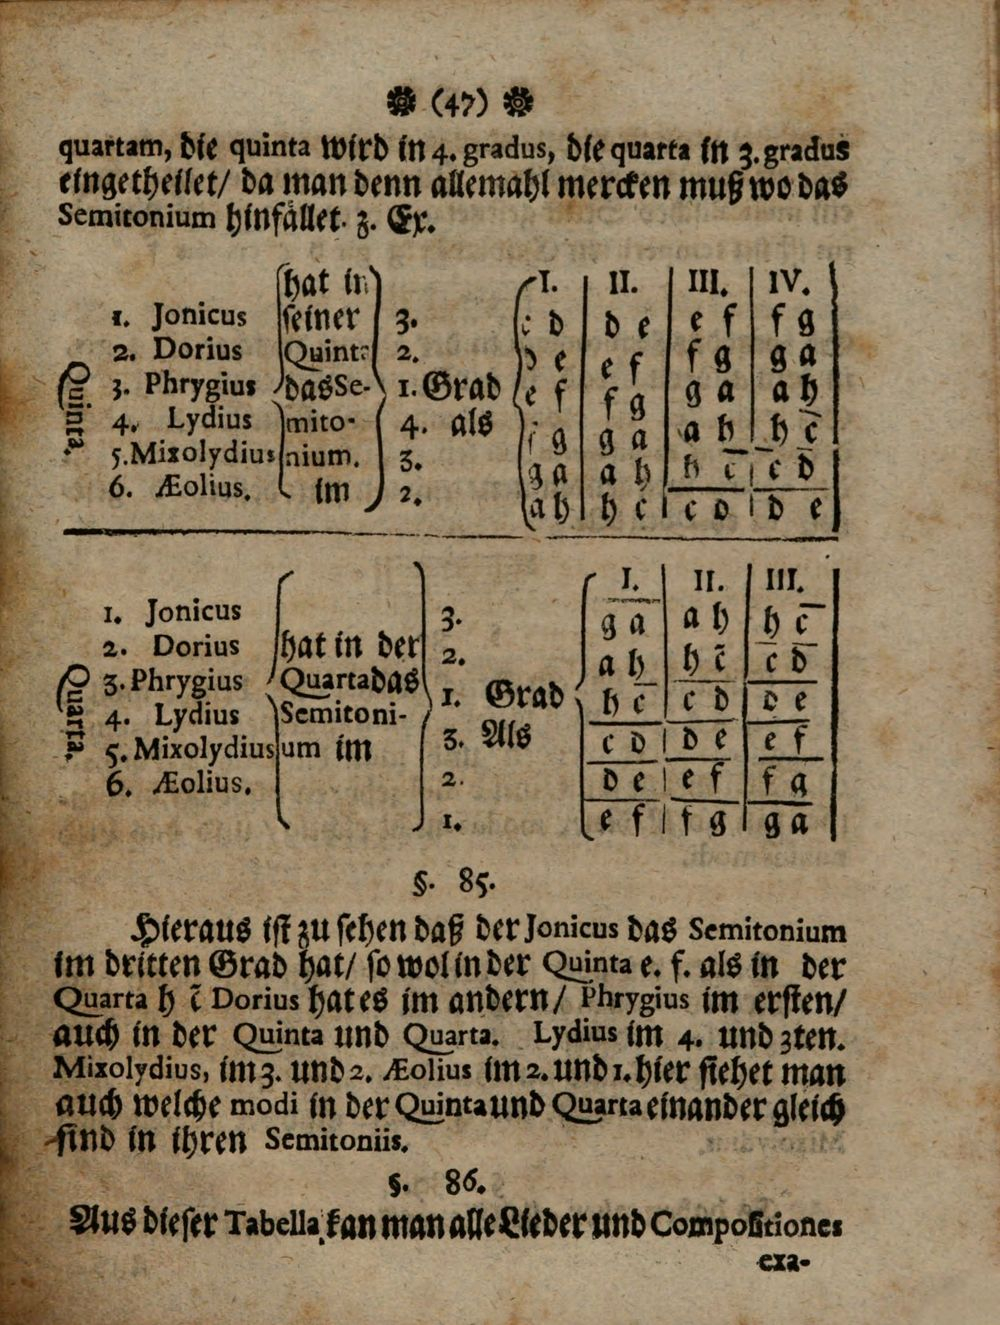 (47)
quartam, die quinta wird in 4. gradus, die quarta in 3. gradus
eingetheilet/ da man denn allemahl mercken muß wo das
Semitonium hinfället. z. Ex.
hat in I. II. III. IV.
1. Jonicus seiner 3. c d d e e f f g
2. Dorius Quinta 2. d e e f f g g a
Quinta. 3. Phrygius das Se- 1. Grad e f f g g a a h
4. Lydius mito- 4. als f g g a a h h c̄
5. Mixolydius nium. 3. g a a h h c̄ c d
6. Æolius. im 2. a h h c c d d e
I. II. III.
1. Jonicus 3. g a a h h c̄
2. Dorius hat in der 2. a h h c̄ c d
Quarta. 3. Phrygius Quarta das 1. Grad h c c d d e
4. Lydius Semitoni- 3. Als c d d e e f
5. Mixolydius um im 2. d e e f f g
6. Æolius. 1. e f f g g a
§. 85.
Hieraus ist zu sehen daß der Jonicus das Semitonium
im dritten Grad hat/ so wol in der Quinta e. f. als in der
Quarta h c̄ Dorius hat es im andern/ Phrygius im ersten/
auch in der Quinta und Quarta. Lydius im 4. und 3ten.
Mixolydius, im 3. und 2. Æolius im 2. und 1. hier siehet man
auch welche modi in der Quinta und Quarta einander gleich
sind in ihren Semitoniis.
§. 86.
Aus dieser Tabella kan man alle Lieder und Compositiones
exa-